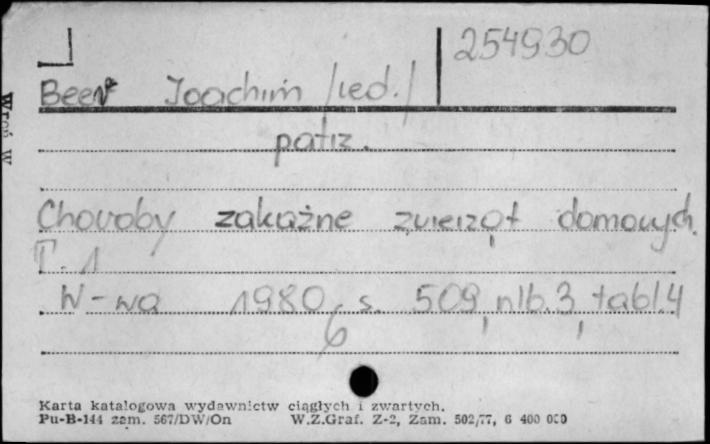 254930
Beer Joachim /red./
patrz.
Choroby zakaźne zwierząt domowych.
T. 1
W-wa 1980, s. 509, nlb. 3, tabl. 4
6
Karta katalogowa wydawnictw ciągłych i zwartych.
Pu-B-144 zam. 567/DW/On W.Z.Graf. Z-2, Zam. 502/77, 6 400 000